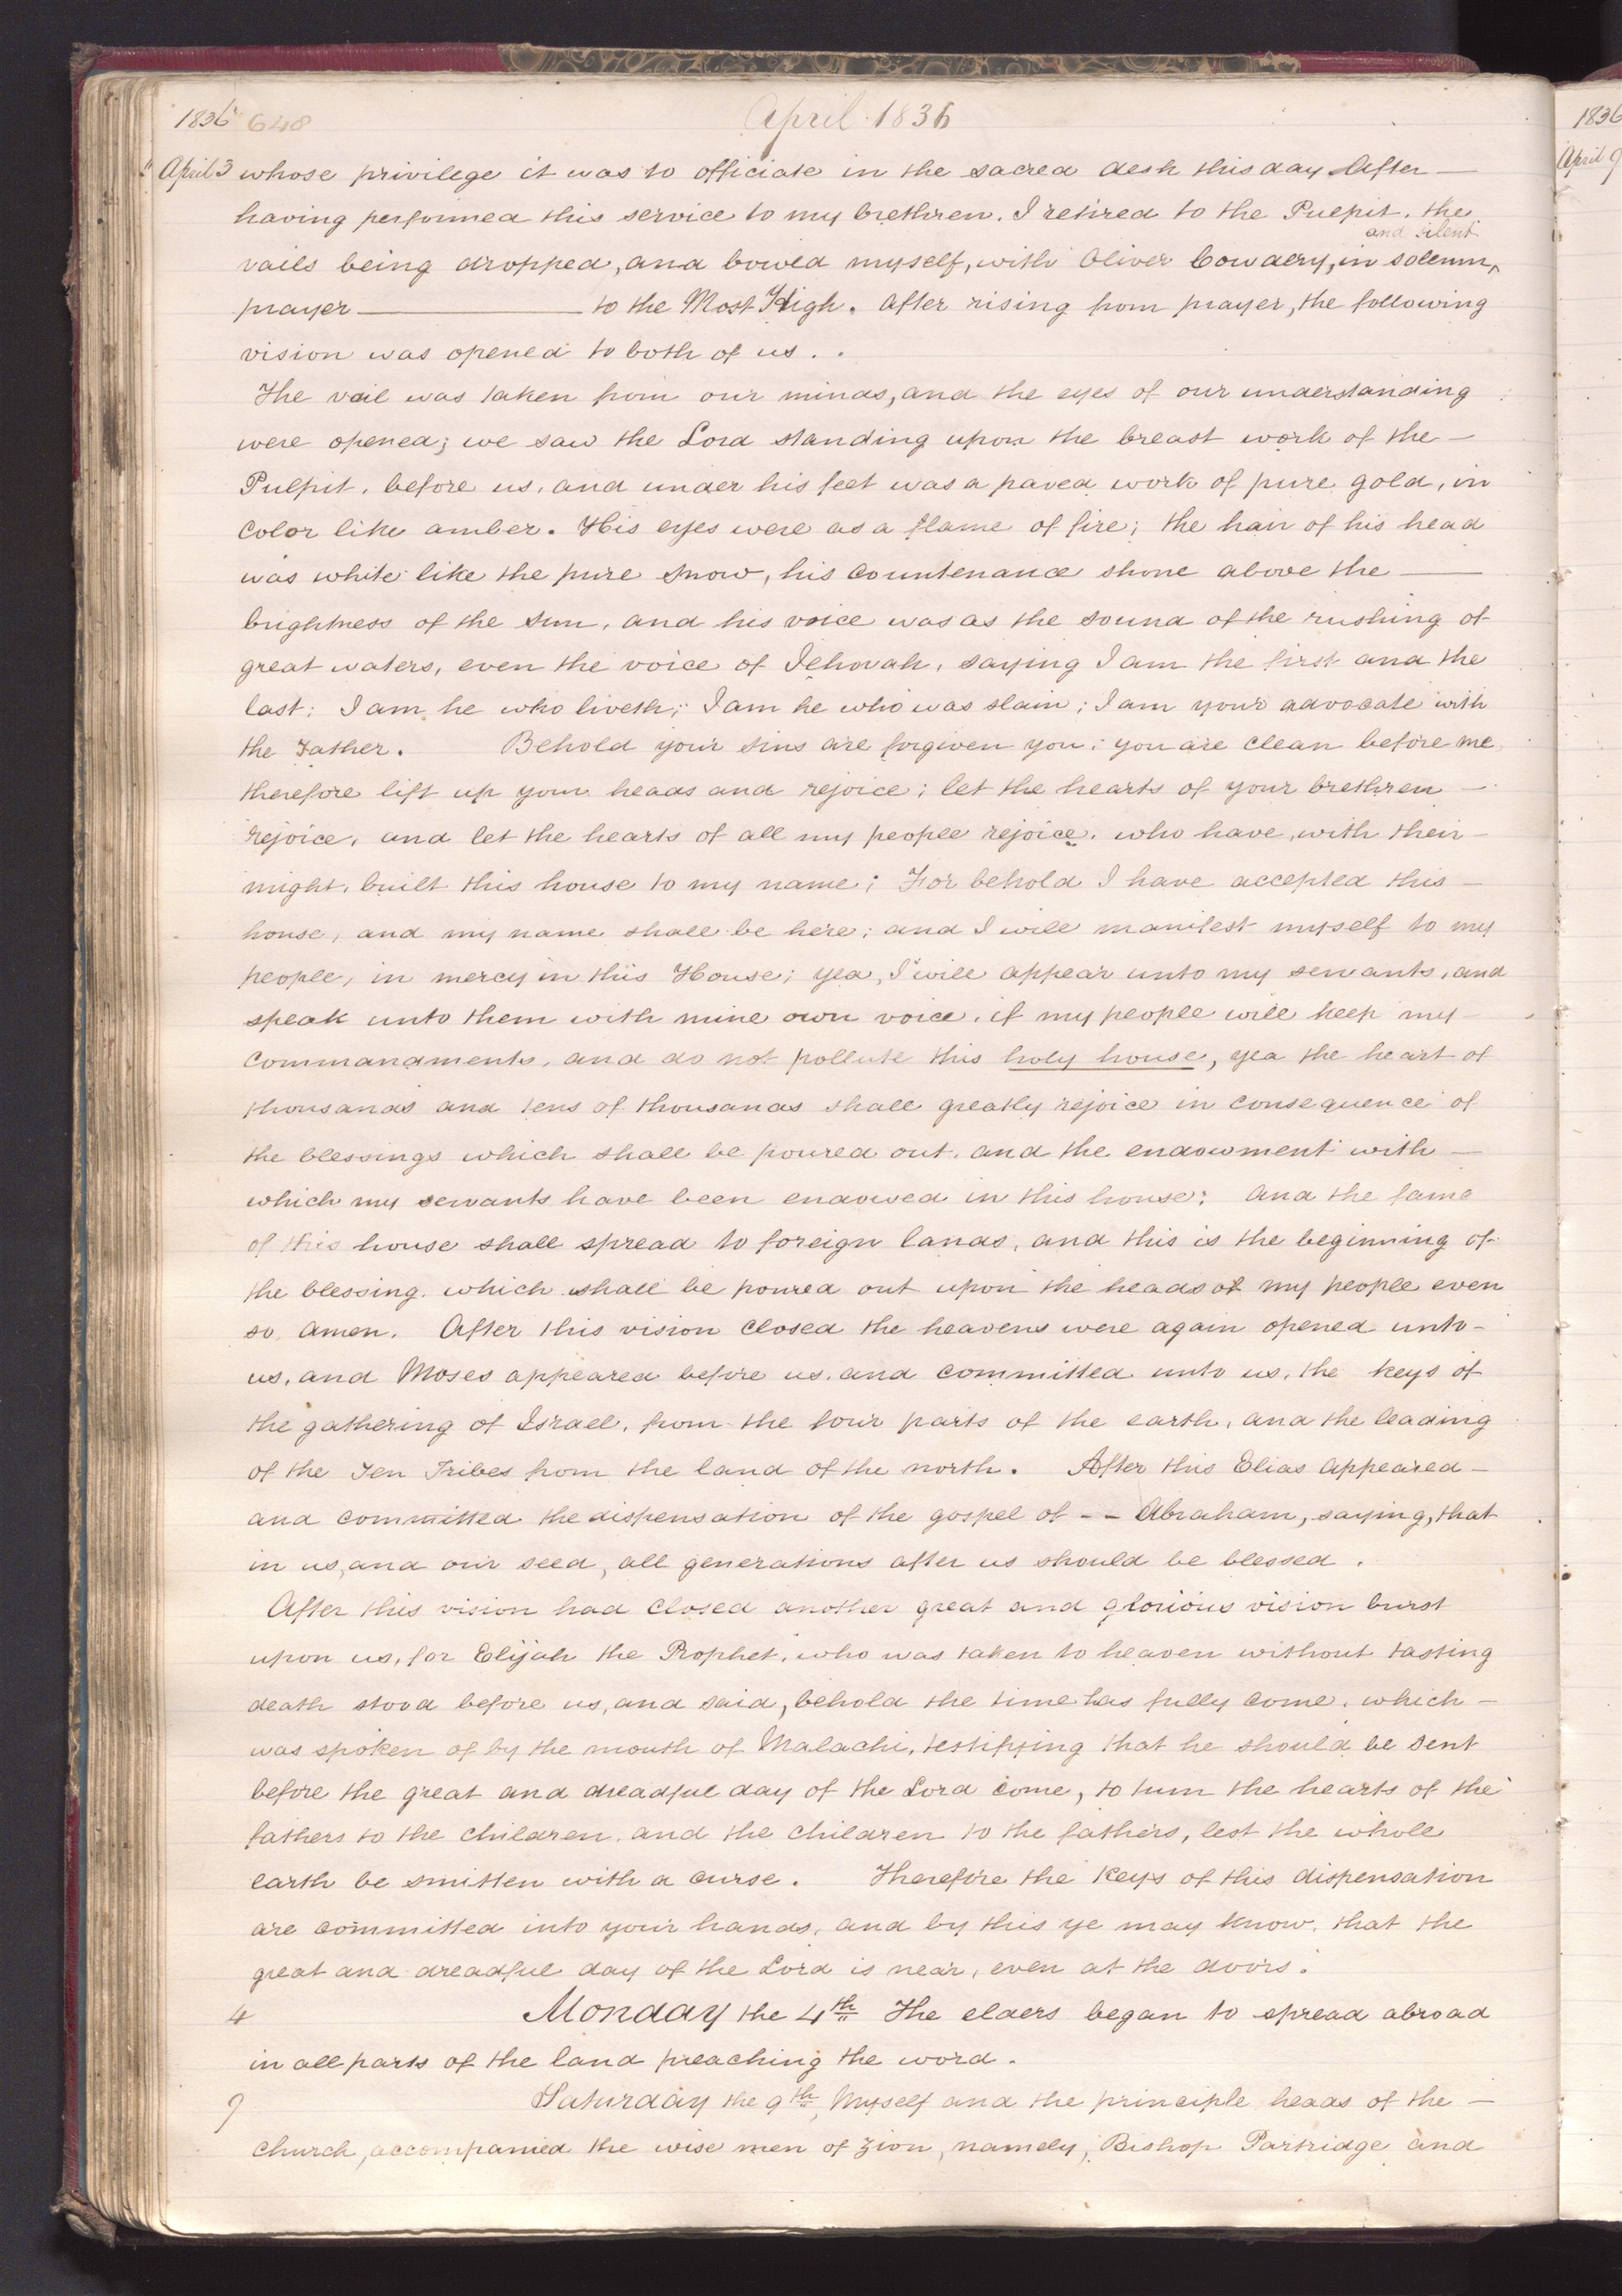 1836 648 April 1836
April 3 whose privilege it was to officiate in the sacred desk this day After —
having performed this service to my brethren. I retired to the Pulpit, the
and silent
vails being dropped, and bowed myself, with Oliver Cowdery, in solemn ^
prayer ———— to the Most High. After rising from prayer, the following
vision was opened to both of us . .
The vail was taken from our minds, and the eyes of our understanding
were opened; we saw the Lord standing upon the breast work of the —
Pulpit, before us, and under his feet was a paved work of pure gold, in
color like amber. His eyes were as a flame of fire; the hair of his head
was white like the pure snow, his countenance shone above the —
brightness of the sun, and his voice was as the sound of the rushing of
great waters, even the voice of Jehovah, saying I am the first and the
last; I am he who liveth; I am he who was slain; I am your advocate with
the Father. Behold your sins are forgiven you; you are clean before me,
therefore lift up your heads and rejoice; let the hearts of your brethren —
rejoice, and let the hearts of all my people rejoice, who have, with their —
might, built this house to my name; For behold I have accepted this —
house, and my name shall be here; and I will manifest myself to my
people, in mercy in this House; yea, I will appear unto my servants, and
speak unto them with mine own voice, if my people will keep my —
commandments, and do not pollute this holy house, yea the heart of
thousands and tens of thousands shall greatly rejoice in consequence of
the blessings which shall be poured out, and the endowment with —
which my servants have been endowed in this house; and the fame
of this house shall spread to foreign lands, and this is the beginning of
the blessing, which shall be poured out upon the heads of my people even
so amen. After this vision closed the heavens were again opened unto —
us, and Moses appeared before us, and committed unto us, the keys of
the gathering of Israel, from the four parts of the earth, and the leading
of the Ten Tribes from the land of the north. After this Elias appeared —
and committed the dispensation of the gospel of - - Abraham, saying, that
in us, and our seed, all generations after us should be blessed.
After this vision had closed another great and glorious vision burst
upon us, for Elijah the Prophet, who was taken to heaven without tasting
death stood before us, and said, behold the time has fully come, which —
was spoken of by the mouth of Malachi, testifying that he should be sent
before the great and dreadful day of the Lord come, to turn the hearts of the
fathers to the children, and the children to the fathers, lest the whole
earth be smitten with a curse. Therefore the keys of this dispensation
are committed into your hands, and by this ye may know, that the
great and dreadful day of the Lord is near, even at the doors.
4 Monday the 4th The elders began to spread abroad
in all parts of the land preaching the word.
9 Saturday the 9th, Myself and the principle heads of the —
church, accompanied the wise men of Zion, namely, Bishop Partridge and
1836
April 9